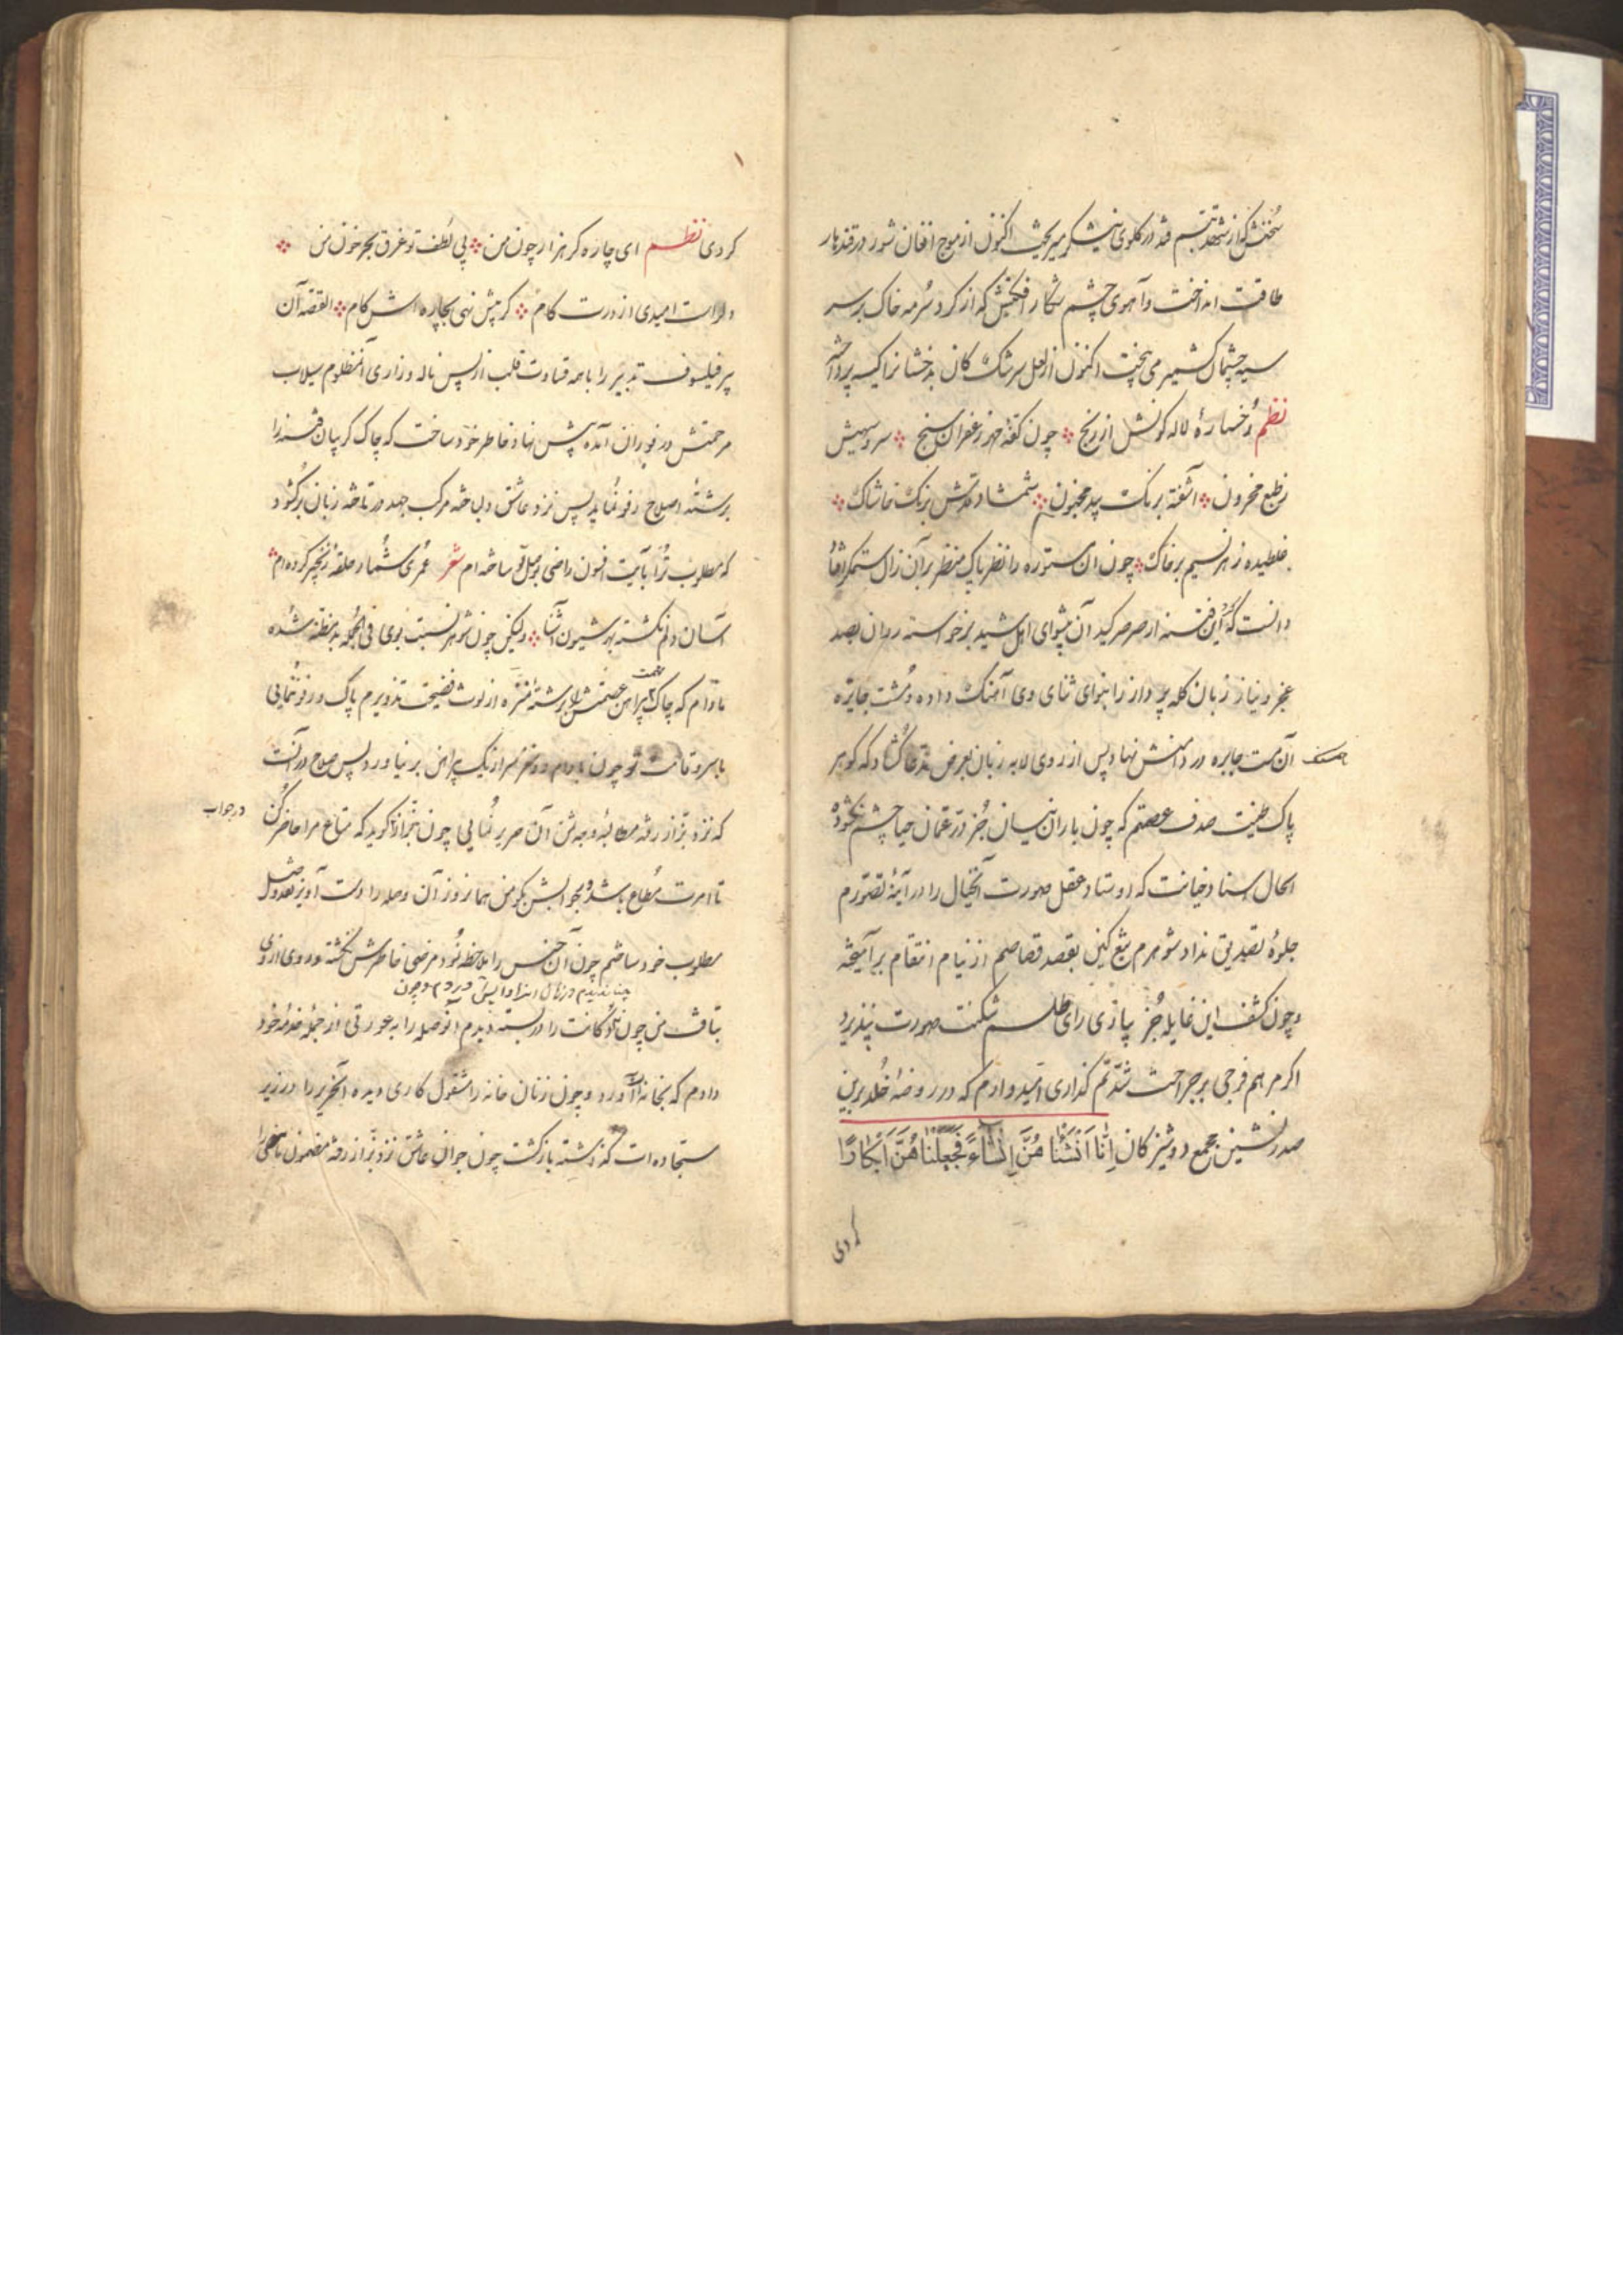 سخنش که از شهد تبسم قند در گلوی نیشکر میریخت اکنون از موج افغان شور در قندهار
طاقت انداخت و آهوی چشم شکار افکنش که از گرد سرمه خاک بر سر
سیه چشمان کشمیر می بیخت اکنون از لعل سرشک کان بدخشانرا کیسه پرداخته
نظم رخساره لاله گونش از رنج چون کفه زعفران سنج سرو سهیش
ز طبع محزون آشفته برنگ بید مجنون شمشاد قدش برنگ خاشاک
غلطیده ز هر نسیم بر خاک چون آن ستوره را نظر پاک منظر بر آن زال ستمگر افتاد
دانست که این فتنه از صرصر کید آن پیشوای اهل شید برخواسته روان بصد
عجز و نیاز زبان کله پرداز را بنوای ثنای وی آهنگ داده و مشت جایزه
آن مست جایره در دامنش نهاد پس از روی لابه زبان بعرض مدعا گشاد که گوهر
پاک طینت صدف عصمتم که چون باران نیسان جز در عمان حیا چشم نگشوده
الحال اسناد خیانت که اوستاد عقل صورت آنخیال را در آینه تصورم
جلوه تصدیق نداد شوهرم تیغ کین بقصد قصاصم از نیام انتقام برآمیخته
و چون کشف این غایله جز بیازی رای طلسم شکنت صورت نپذیرد
اگر مرهم فرجی بر جراحت شدتم گذاری امیدوارم که در روضه خلد برین
صدرنشین مجمع دوشیزگان اِنّا اَنْشَأْنا هُنَّ اِنْشاءً فَجَعَلْنا هُنَّ اَبْکارًا
کردی
کردی نظم ای چاره گر هزار چون من بی لطف تو غرق بحر خون من
دلراست امیدی از درت کام گر پیش نهی بچاره اش گام القصه آن
پیر فیلسوف تدبیر را با همه قساوت قلب از پس ناله و زاری آنمظلوم سیلاب
مرحمتش در فوران آمده پیش نهاد خاطر خود ساخت که چاک گریبان فتنه را
برشته اصلاح رفو نماید پس نزد عاشق دلباخته مرکب جهد در تاخته زبان برگشود
که مطلوب ترا بآیت افسون راضی بوصل تو ساخته ام شعر عمری شمار حلقه زنجیر کرده ام
آسان دلم نگشته بهر شیون آشنا ولیکن چون شوهر نسبت بوی فی الجمله بدمظنه شده
مادام که چاک پیراهن عصمتش برشته منزه از لوث فضیحت تذویرم پاک و رفو ننمایی
با سرو قامت تو چون بادام دو مغز سر از یک پیراهن بر نیاورد پس صلاح در آنست
که نزد بزاز رفته مطالبه وجه ثمن آن حریر نمایی چون بزاز گوید که متاع مرا حاضر کن
در جواب
تا امرت مطاع باشد بجوابش بگو من همانروز آن وصله را دست آویز
مطلوب خود ساختم چون آن جنس را ملاحظه نمود مرضی خاطرش نگشته و روی از وی
چون
بتافت من چون دکانت را در بسته دیدم آنوصله را به عورتی از جمله خدمه خود
دادم که بخانه ات آورد و چون زنان خانه را مشغول کاری دیده آنحریر را در زیر
سجاده ات گذاشته بازگشت چون جوان عاشق نزد بزاز رفته مضمون